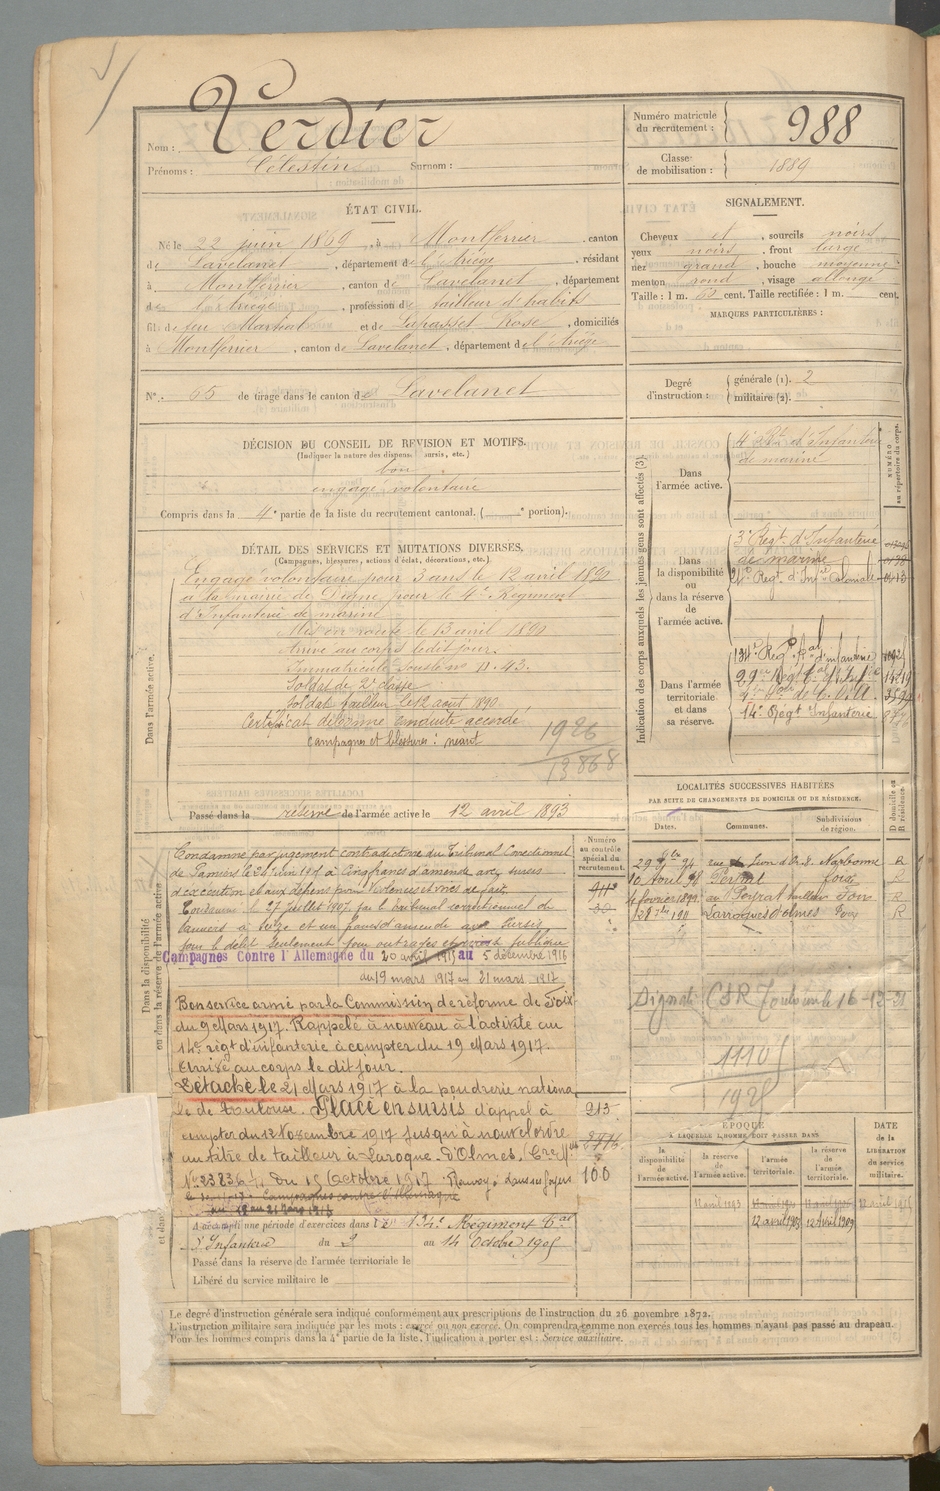 Nom : Verdier
Prénoms : Célestin Surnom :
Numéro matricule du recrutement : 988
Classe de mobilisation : 1889
ÉTAT CIVIL.
Né le 22 juin 1869, à Montferrier, canton
de Lavelanet, département de l'Ariège, résidant
à Montferrier, canton de Lavelanet, département
de l'Ariège, profession de tailleur d'habits
fils de feu Martial et de Lapasset Rose, domiciliés
à Montferrier, canton de Lavelanet, département de l'Ariège
N° 65 de tirage dans le canton de Lavelanet
SIGNALEMENT.
Cheveux et, sourcils noirs
yeux noirs, front large
nez grand, bouche moyenne
menton rond, visage allongé
Taille : 1 m. cent. Taille rectifiée : 1 m. cent.
MARQUES PARTICULIÈRES :
Degré d'instruction : générale (1). 2
militaire (2).
DÉCISION DU CONSEIL DE REVISION ET MOTIFS.
(Indiquer la nature des dispenses, sursis, etc.)
bon
engagé volontaire
Compris dans la 4e partie de la liste du recrutement cantonal. ( e portion).
DÉTAIL DES SERVICES ET MUTATIONS DIVERSES.
(Campagnes, blessures, actions d'éclat, décorations, etc.)
Dans l'armée active.
Engagé volontaire pour 3 ans le 12 avril 1890
à la mairie de Digne pour le 4e Régiment
d'Infanterie de marine
Mis en route le 13 avril 1890
Arrivé au corps ledit jour.
Immatriculé sous le n° 43.
Soldat de 2e classe
Soldat tailleur le 12 août 1890.
Certificat de bonne conduite accordé
Campagnes et blessures : néant
1926
13868
Passé dans la réserve de l'armée active le 12 avril 1893
Indication des corps auxquels les jeunes gens sont affectés (3).
NUMÉRO au répertoire du corps.
Dans l'armée active.
4e Rt d'Infanterie
de marine
Dans la disponibilité ou dans la réserve de l'armée active.
3e Régt d'Infanterie
de marine
Régt. d'Infie Coloniale
Dans l'armée territoriale et dans sa réserve.
134e Régt tal d'infanterie
14e Régt Infanterie
LOCALITÉS SUCCESSIVES HABITÉES
PAR SUITE DE CHANGEMENTS DE DOMICILE OU DE RÉSIDENCE.
Dates. Communes. Subdivisions de région. D domicile ou R résidence.
29 7bre 94 rue Lion d'Or 8 Narbonne R
10 Août 98 Foix R
4 février 1899 au Peyrat Foix R
1911 Laroque d'Olmes Foix R
16-12-21
1110
1925
Dans la disponibilité ou dans la réserve de l'armée active
Numéro au contrôle spécial du recrutement.
Condamné par jugement contradictoire du Tribunal Correctionnel
de Pamiers le juin 19 à cinq francs d'amende avec sursis
d'exécution et aux dépens pour violences et voies de fait.
Condamné le 27 juillet 1907 par le Tribunal correctionnel de
Pamiers à seize et un francs d'amende avec sursis
pour le délit seulement pour outrages et publique
Campagnes Contre l'Allemagne du 20 avril 1915 au 5 décembre 1916
du 19 mars 1917 au 21 mars 1917
Bon service armé par la Commission de réforme de Foix
du 9 Mars 1917. Rappelé à nouveau à l'activité au
14e régt d'infanterie à compter du 19 Mars 1917.
Arrivé au corps le dit jour.
Détaché le 21 Mars 1917 à la poudrerie nationa
le de Toulouse. Placé en sursis d'appel à
compter du 12 Novembre 1917 jusqu'à nouvel ordre
au titre de tailleur à Laroque d'Olmes.
N° 23836 du 15 Octobre 1917 dans ses foyers
213
100
A accompli une période d'exercices dans le 134e Régiment tal
d'Infanterie du 2 au 14 Octobre 1905
Passé dans la réserve de l'armée territoriale le
Libéré du service militaire le
ÉPOQUE À LAQUELLE L'HOMME DOIT PASSER DANS
DATE de la LIBÉRATION du service militaire.
la disponibilité de l'armée active. la réserve de l'armée active. l'armée territoriale. la réserve de l'armée territoriale.
12 avril 1893
12 avril 1903 12 Avril 1909
Le degré d'instruction générale sera indiqué conformément aux prescriptions de l'instruction du 26 novembre 1872.
L'instruction militaire sera indiquée par les mots : exercé ou non exercé. On comprendra comme non exercés tous les hommes n'ayant pas passé au drapeau.
Pour les hommes compris dans la 4e partie de la liste, l'indication à porter est : Service auxiliaire.